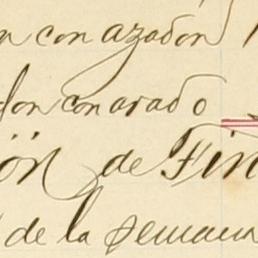 con azadon
don con arado
ón de Fin
de la semana